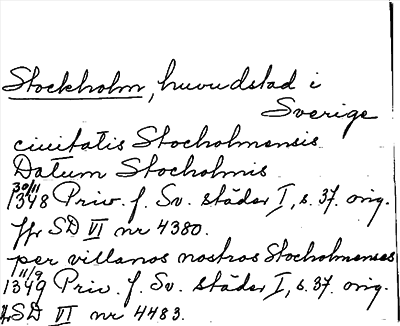 Stockholm, huvudstad i
Sverige
ciuitatis Stocholmensis
Datum Stocholmis
30/11
1348 Priv. f. Sv. städer I, s. 37. orig.
jfr SD VI nr 4380.
per villanos nostros Stocholmenses
11/9
1349 Priv. f. Sv. städer I, s. 37. orig.
jfr SD VI nr 4483.